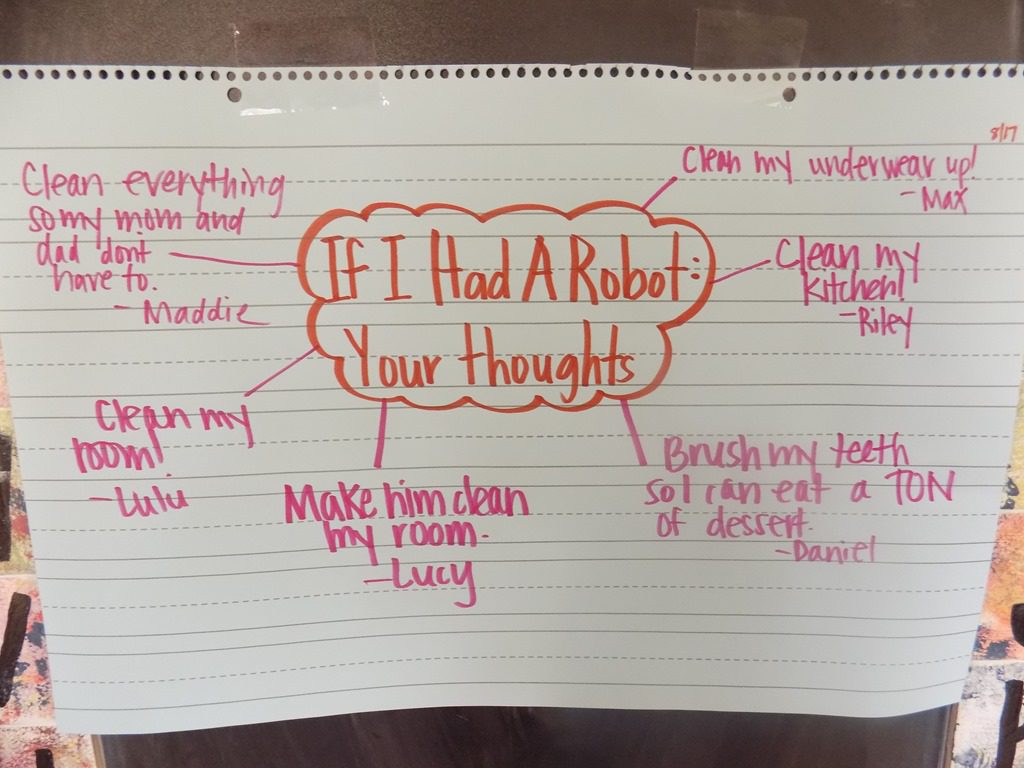 8/17
If I Had A Robot:
Your thoughts
Clean my underwear up!
-Max
Clean my
kitchen!
-Riley
Brush my teeth
so I can eat a TON
of dessert.
-Daniel
Make him clean
my room.
-Lucy
Clean my
room!
-Lulu
Clean everything
so my mom and
dad don't
have to.
-Maddie